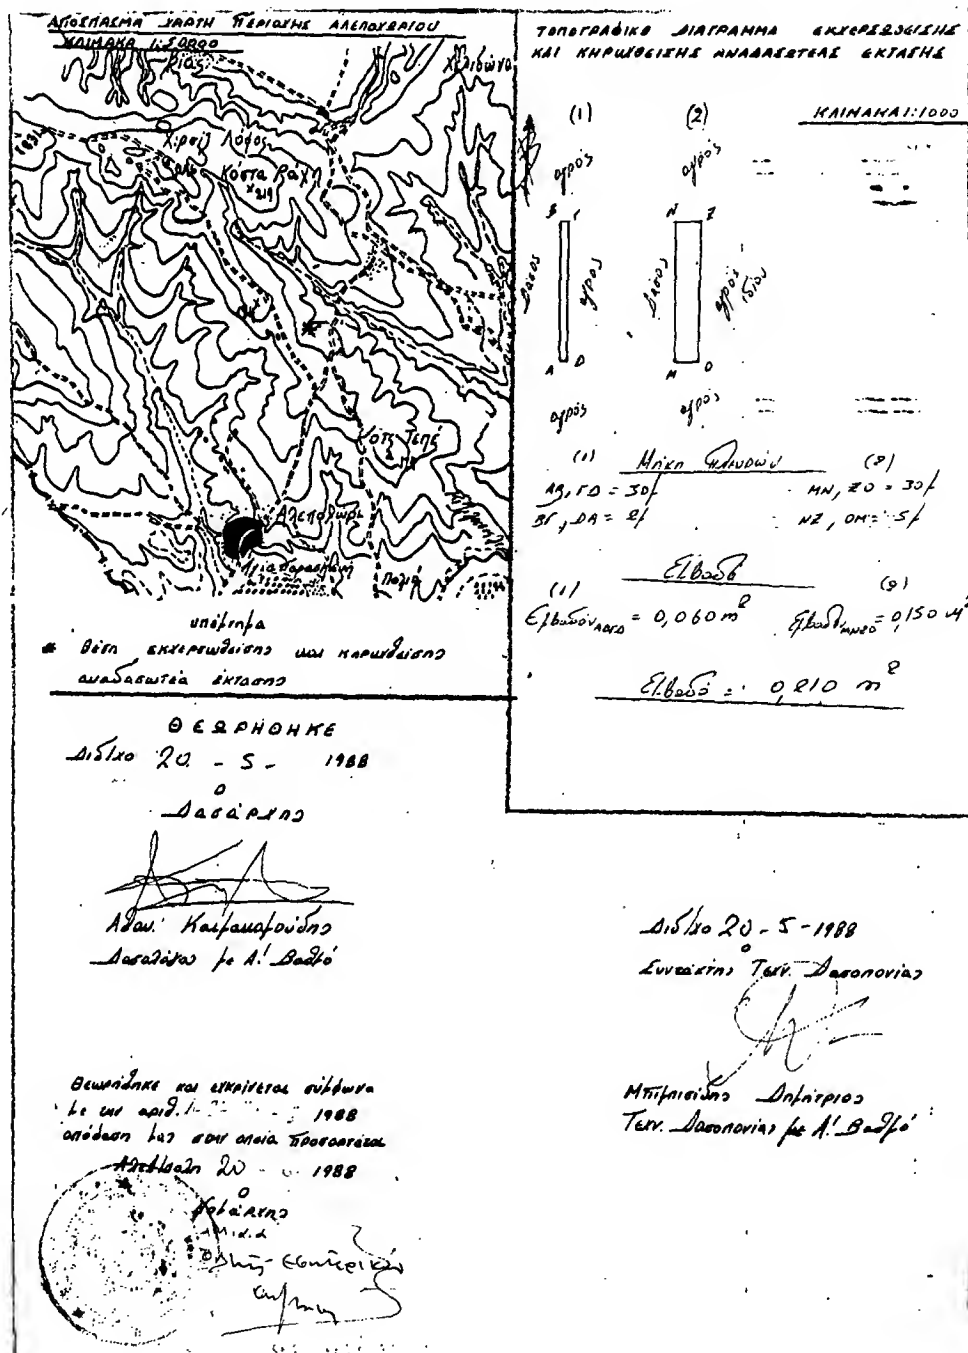 ΑΠΟΣΠΑΣΜΑ ΧΑΡΤΗ ΠΕΡΙΟΧΗΣ ΑΛΕΠΟΧΩΡΙΟΥ
ΚΛΙΜΑΚΑ 1:50000
Χελιδώνα
Χιρσίζ Λόφος
Κώστα Ράχη
Χ219
Αλεποχώρι
Αγία Παρασκευή
Παλιά
υπόμνημα
* θέση εκχερσωθείσης και κηρυχθείσης
αναδασωτέα έκτασης
ΤΟΠΟΓΡΑΦΙΚΟ ΔΙΑΓΡΑΜΜΑ ΕΚΧΕΡΣΩΘΕΙΣΗΣ
ΚΑΙ ΚΗΡΥΧΘΕΙΣΗΣ ΑΝΑΔΑΣΩΤΕΑΣ ΕΚΤΑΣΗΣ
ΚΛΙΜΑΚΑ 1:1000
(1) (2)
αγρός αγρός
Β Γ Ν Ζ
Δάσος αγρος Δάσος αγρός ιδίου
Α Δ Μ Ο
αγρός αγρός
(1) Μήκη πλευρών (2)
ΑΒ, ΓΔ = 30μ ΜΝ, ΖΟ = 30μ
ΒΓ, ΔΑ = 2μ ΝΖ, ΟΜ = 5μ
Εμβαδό
(1) (2)
Εμβαδόν ΑΒΓΔ = 0,060 m² Εμβαδ. ΜΝΖΟ = 0,150 μ²
Εμβαδό = 0,210 m²
ΘΕΩΡΗΘΗΚΕ
Διδ/χο 20 - 5 - 1988
Ο
Δασάρχης
Αθαν. Καϊμακαμούδης
Δασολόγος με Α! Βαθμό
Διδ/χο 20 - 5 - 1988
Ο
Συντάκτης Τεχν. Δασοπονίας
Δημήτριος
Τεχν. Δασοπονίας με Α! Βαθμό
Θεωρήθηκε και εγκρίνεται σύμφωνα
με την αριθ. 1988
απόφαση μας στην οποία προσαρτάται
Αλεξ/πολη 20 1988
Ο
Νομάρχης